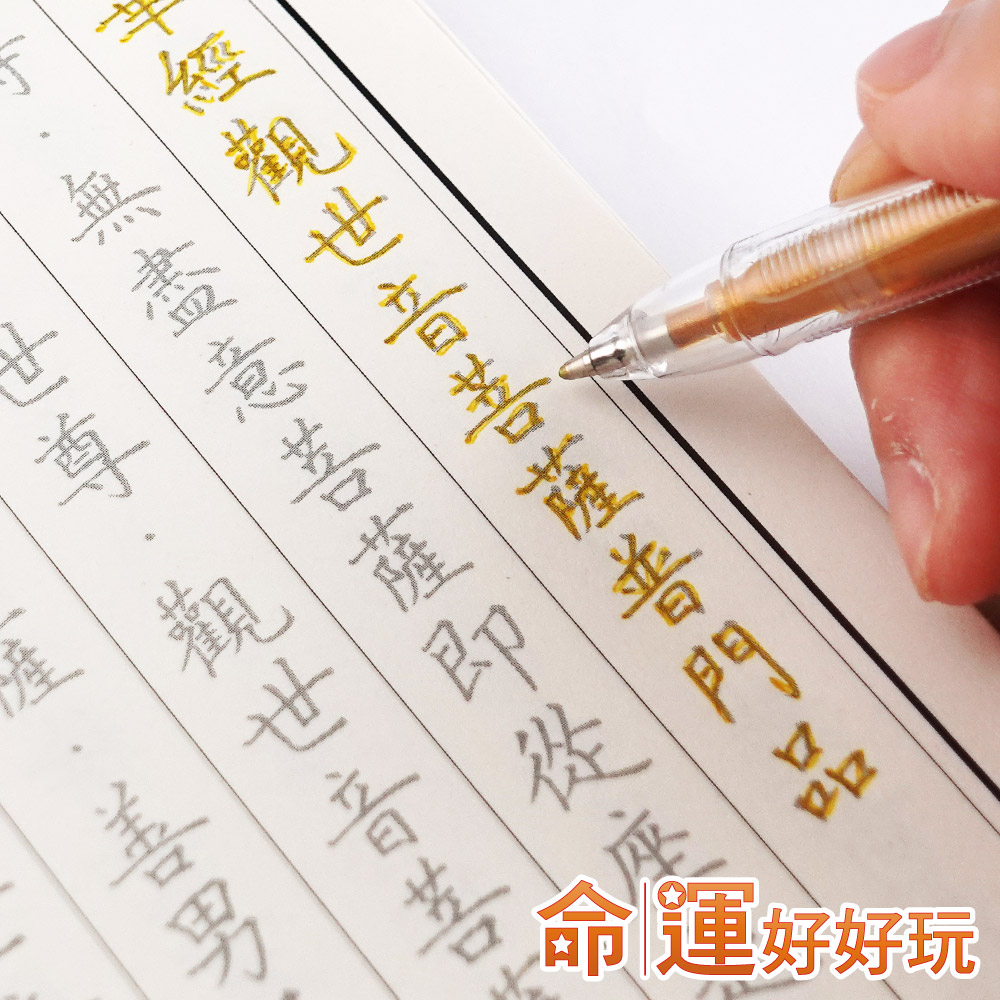 華經觀世音菩薩普門品
無盡意菩薩即從座
世尊．觀世音菩
薩．善男
命運好好玩